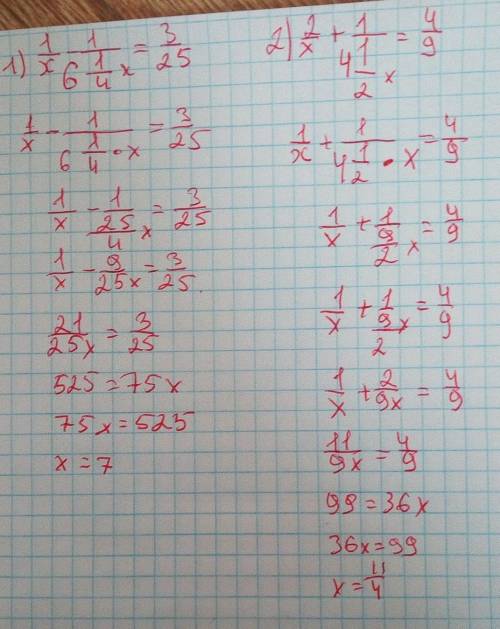 1) 1/x - 1/(6 1/4 x) = 3/25
1/x - 1/(6 1/4 • x) = 3/25
1/x - 1/(25/4 x) = 3/25
1/x - 9/25x = 3/25.
21/25x = 3/25
525 = 75x
75x = 525
x = 7
2) 2/x + 1/(4 1/2 x) = 4/9
1/x + 1/(4 1/2 • x) = 4/9
1/x + 1/(9/2 x) = 4/9
1/x + 1/(9x/2) = 4/9
1/x + 2/9x = 4/9
11/9x = 4/9
99 = 36x
36x = 99
x = 11/4